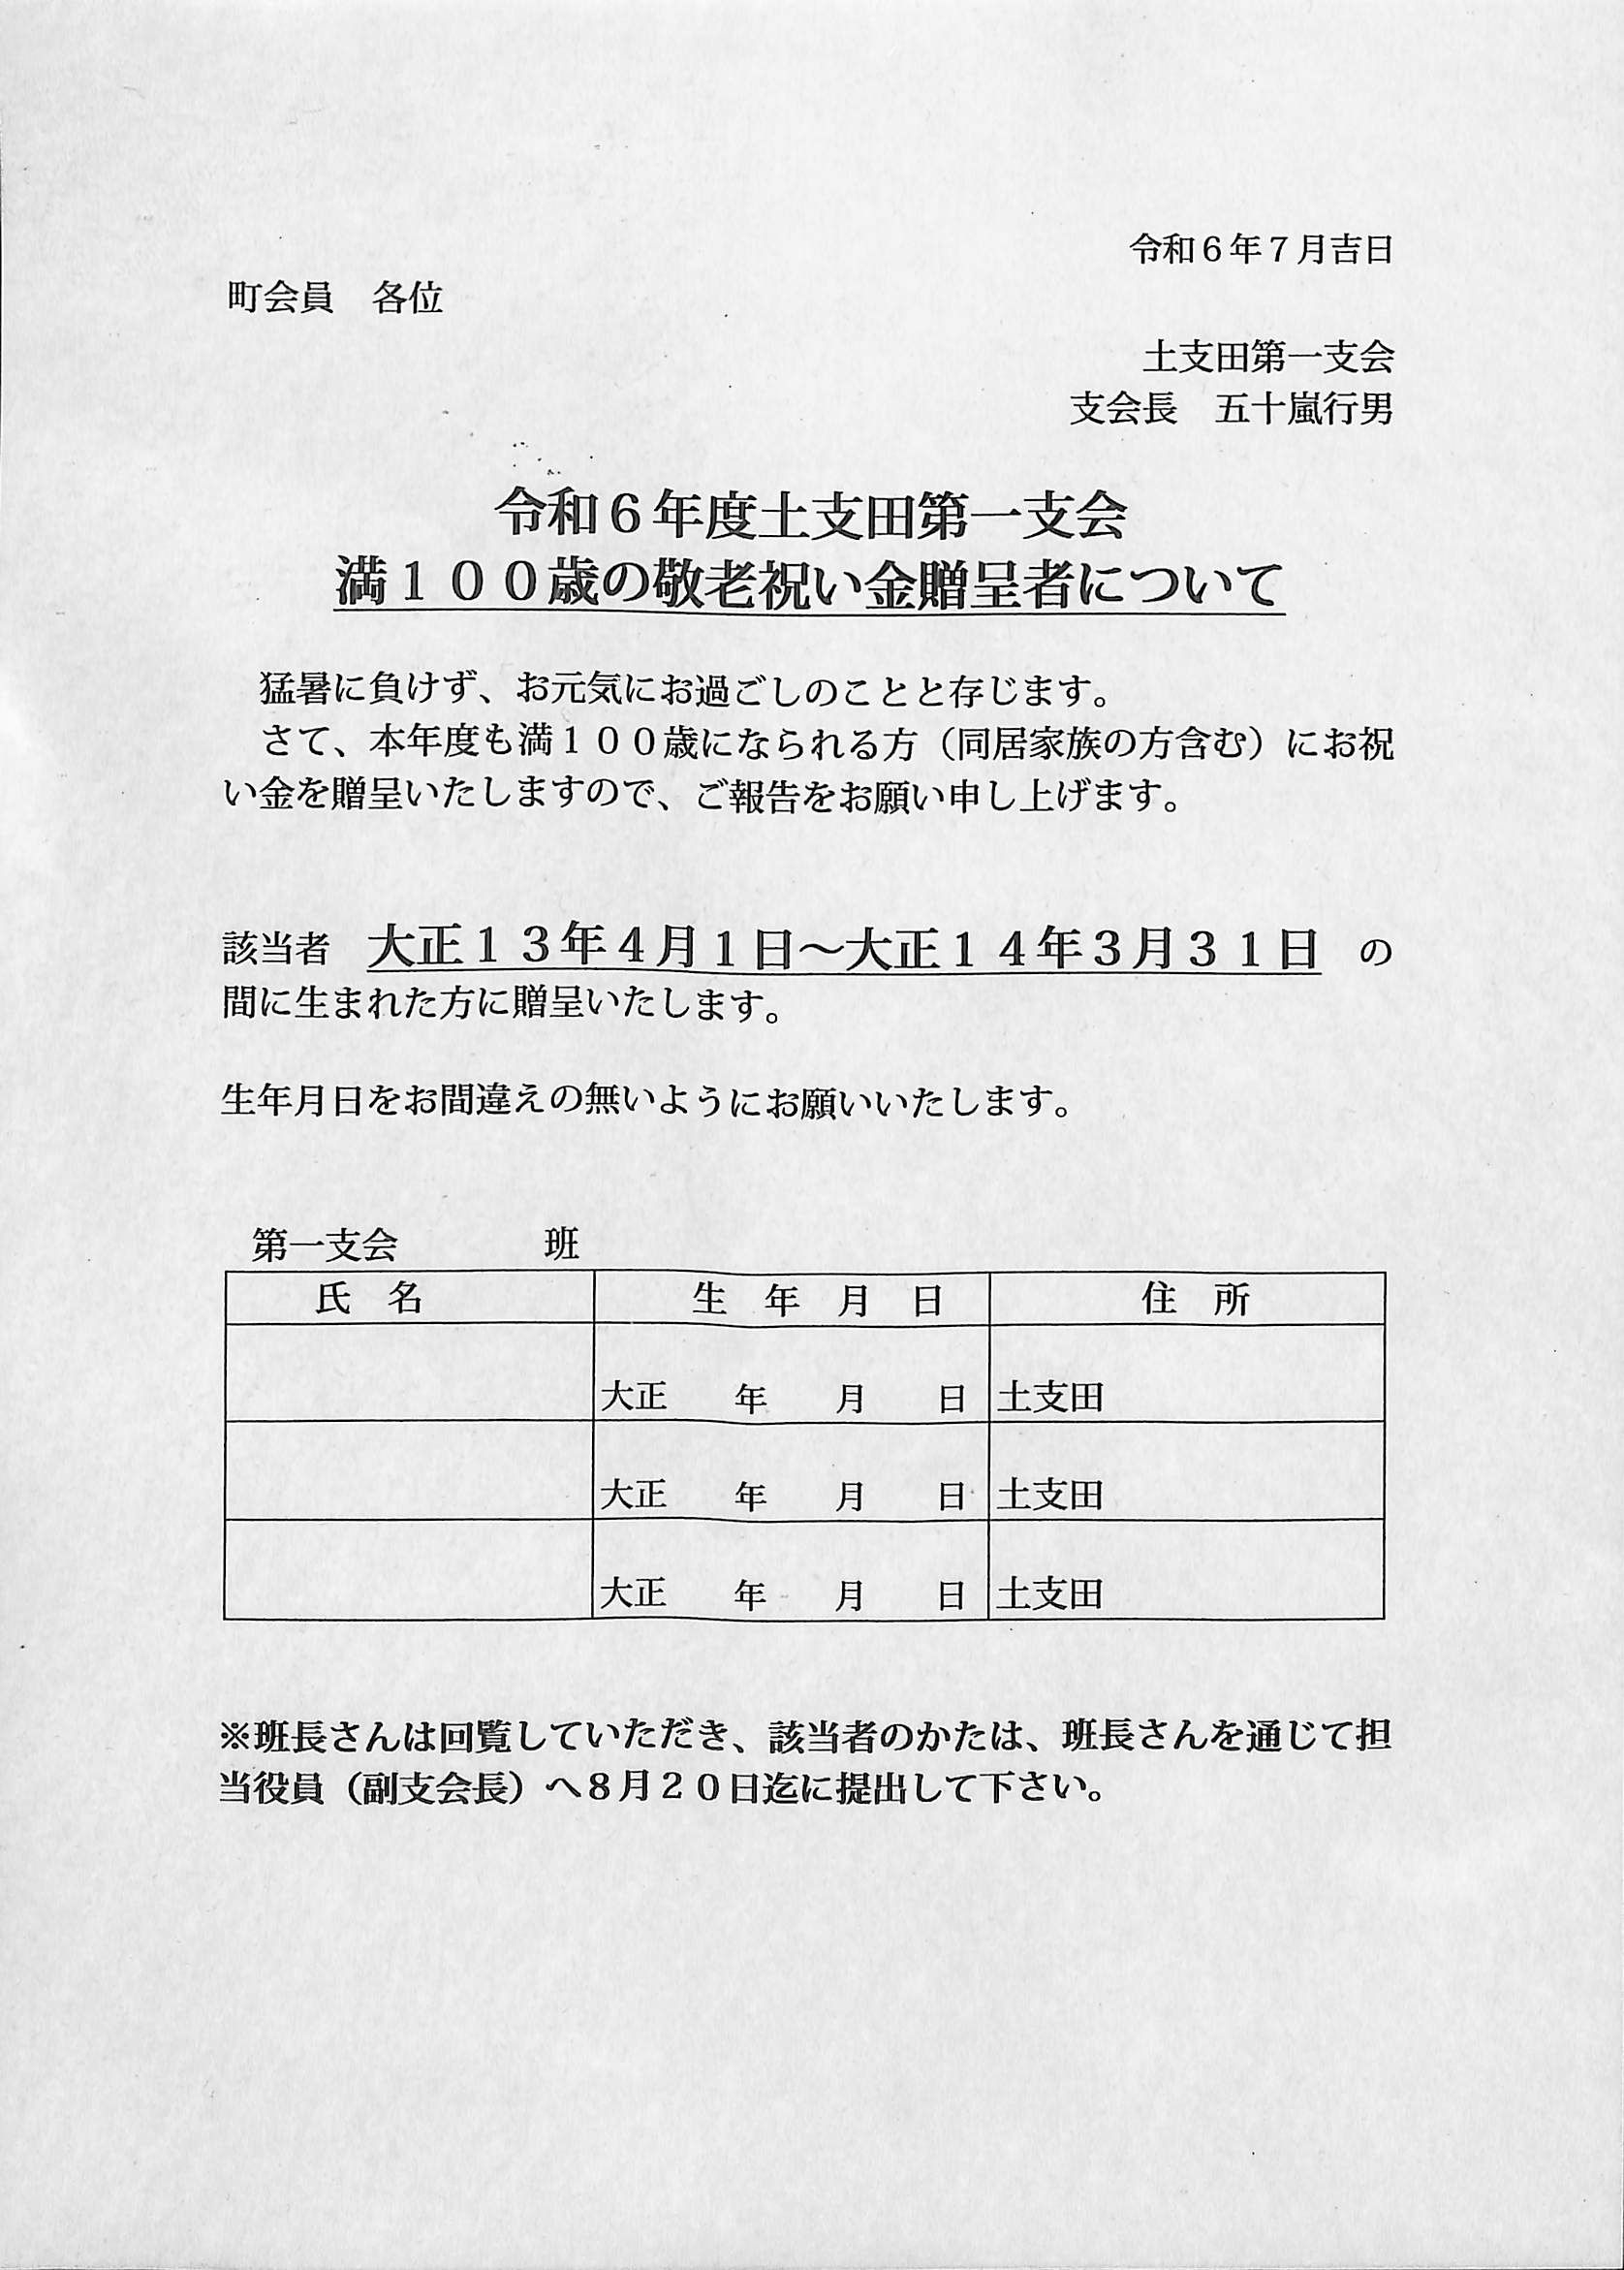 令和６年７月吉日
町会員　各位
土支田第一支会
支会長　五十嵐行男
令和６年度土支田第一支会
満１００歳の敬老祝い金贈呈者について
猛暑に負けず、お元気にお過ごしのことと存じます。
さて、本年度も満１００歳になられる方（同居家族の方含む）にお祝
い金を贈呈いたしますので、ご報告をお願い申し上げます。
該当者　大正１３年４月１日～大正１４年３月３１日　の
間に生まれた方に贈呈いたします。
生年月日をお間違えの無いようにお願いいたします。
第一支会　　　　班
氏　名　生　年　月　日　住　所
大正　年　月　日　土支田
大正　年　月　日　土支田
大正　年　月　日　土支田
※班長さんは回覧していただき、該当者のかたは、班長さんを通じて担
当役員（副支会長）へ８月２０日迄に提出して下さい。